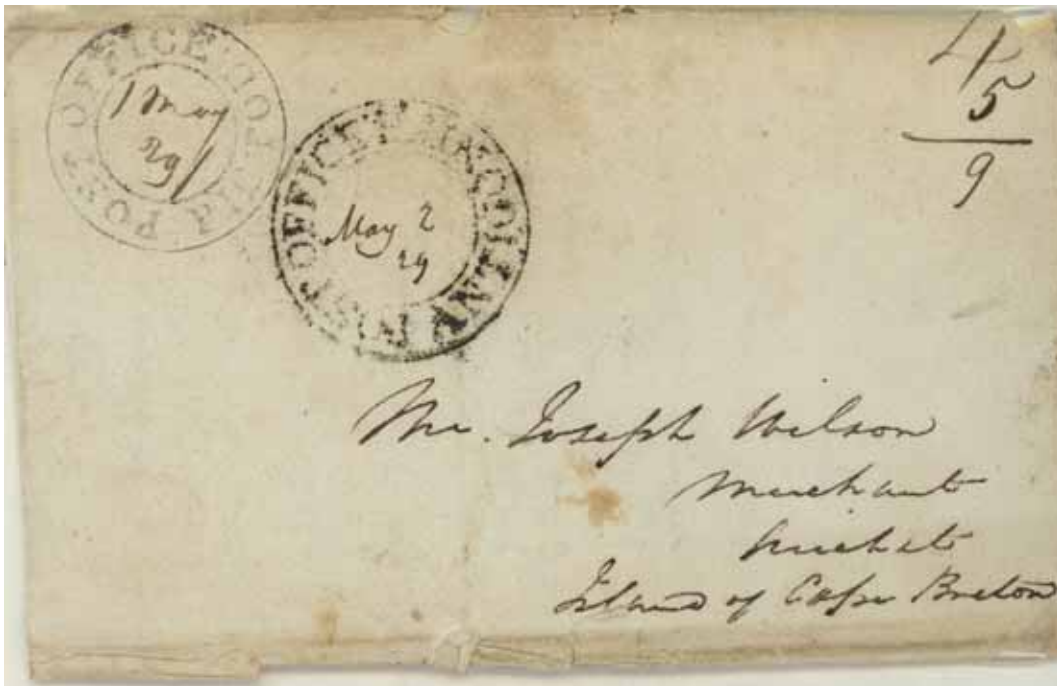 POST OFFICE
1 May
29
OFFICE
May 2
29
4
5
9
Mr. Joseph Wilson
Merchant
Arichat
Island of Cape Breton